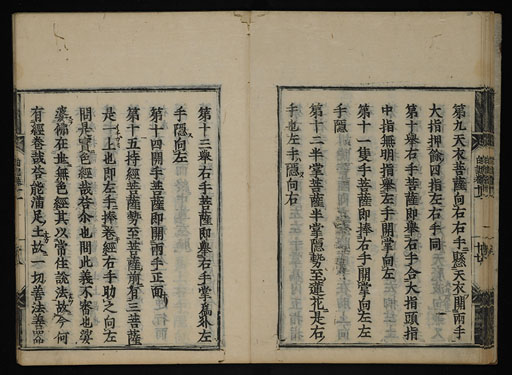 第九天衣菩薩向右右手懸天衣開兩手
大指押餘四指左右手同
第十舉右手菩薩即舉右手合大指頭指
中指無明指舉左手開掌向左
第十一隻手菩薩即捧右手開掌向左左
手隱
第十二半掌菩薩半掌隱勢至蓮花是右
手也左手隱向右
第十三舉右手菩薩即舉右手掌為外左
手隱向左
第十四開手菩薩即開兩手正面
第十五持經菩薩勢至菩薩前有三菩薩
是一上也即左手捧卷經右手助之向左
問是實色經哉答爾也問此義不審也婆
婆佛在世無色經其以常住說法故今何
有經卷哉答能滿足土故一切善法善